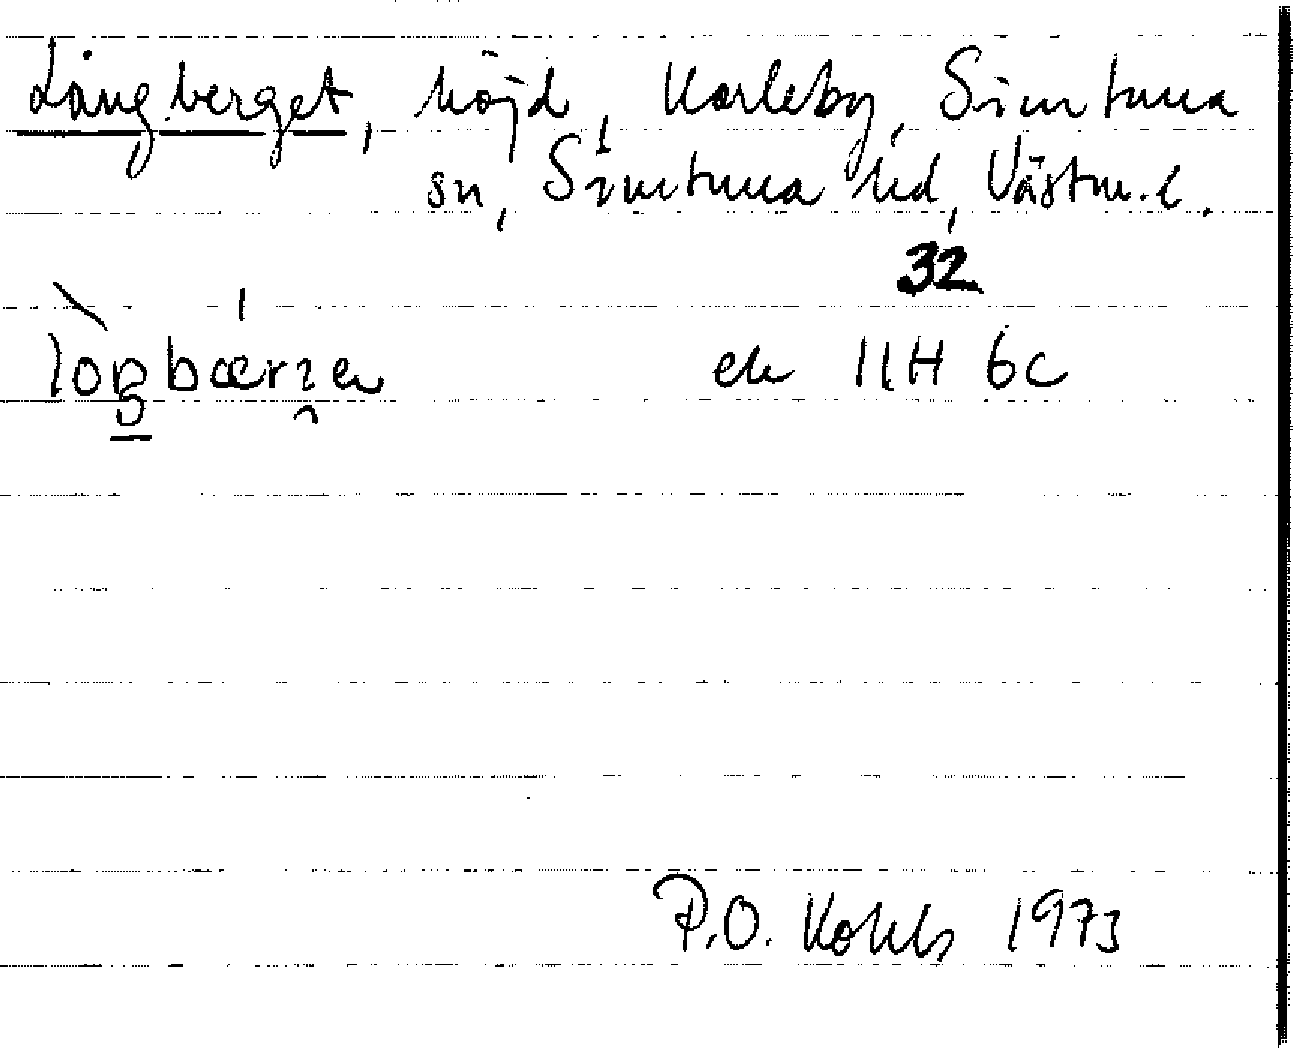 Långberget, höjd, Karleby, Simtuna
sn, Simtuna hd, Västm. l.
32
ek 11H 6c
P.O. 1973